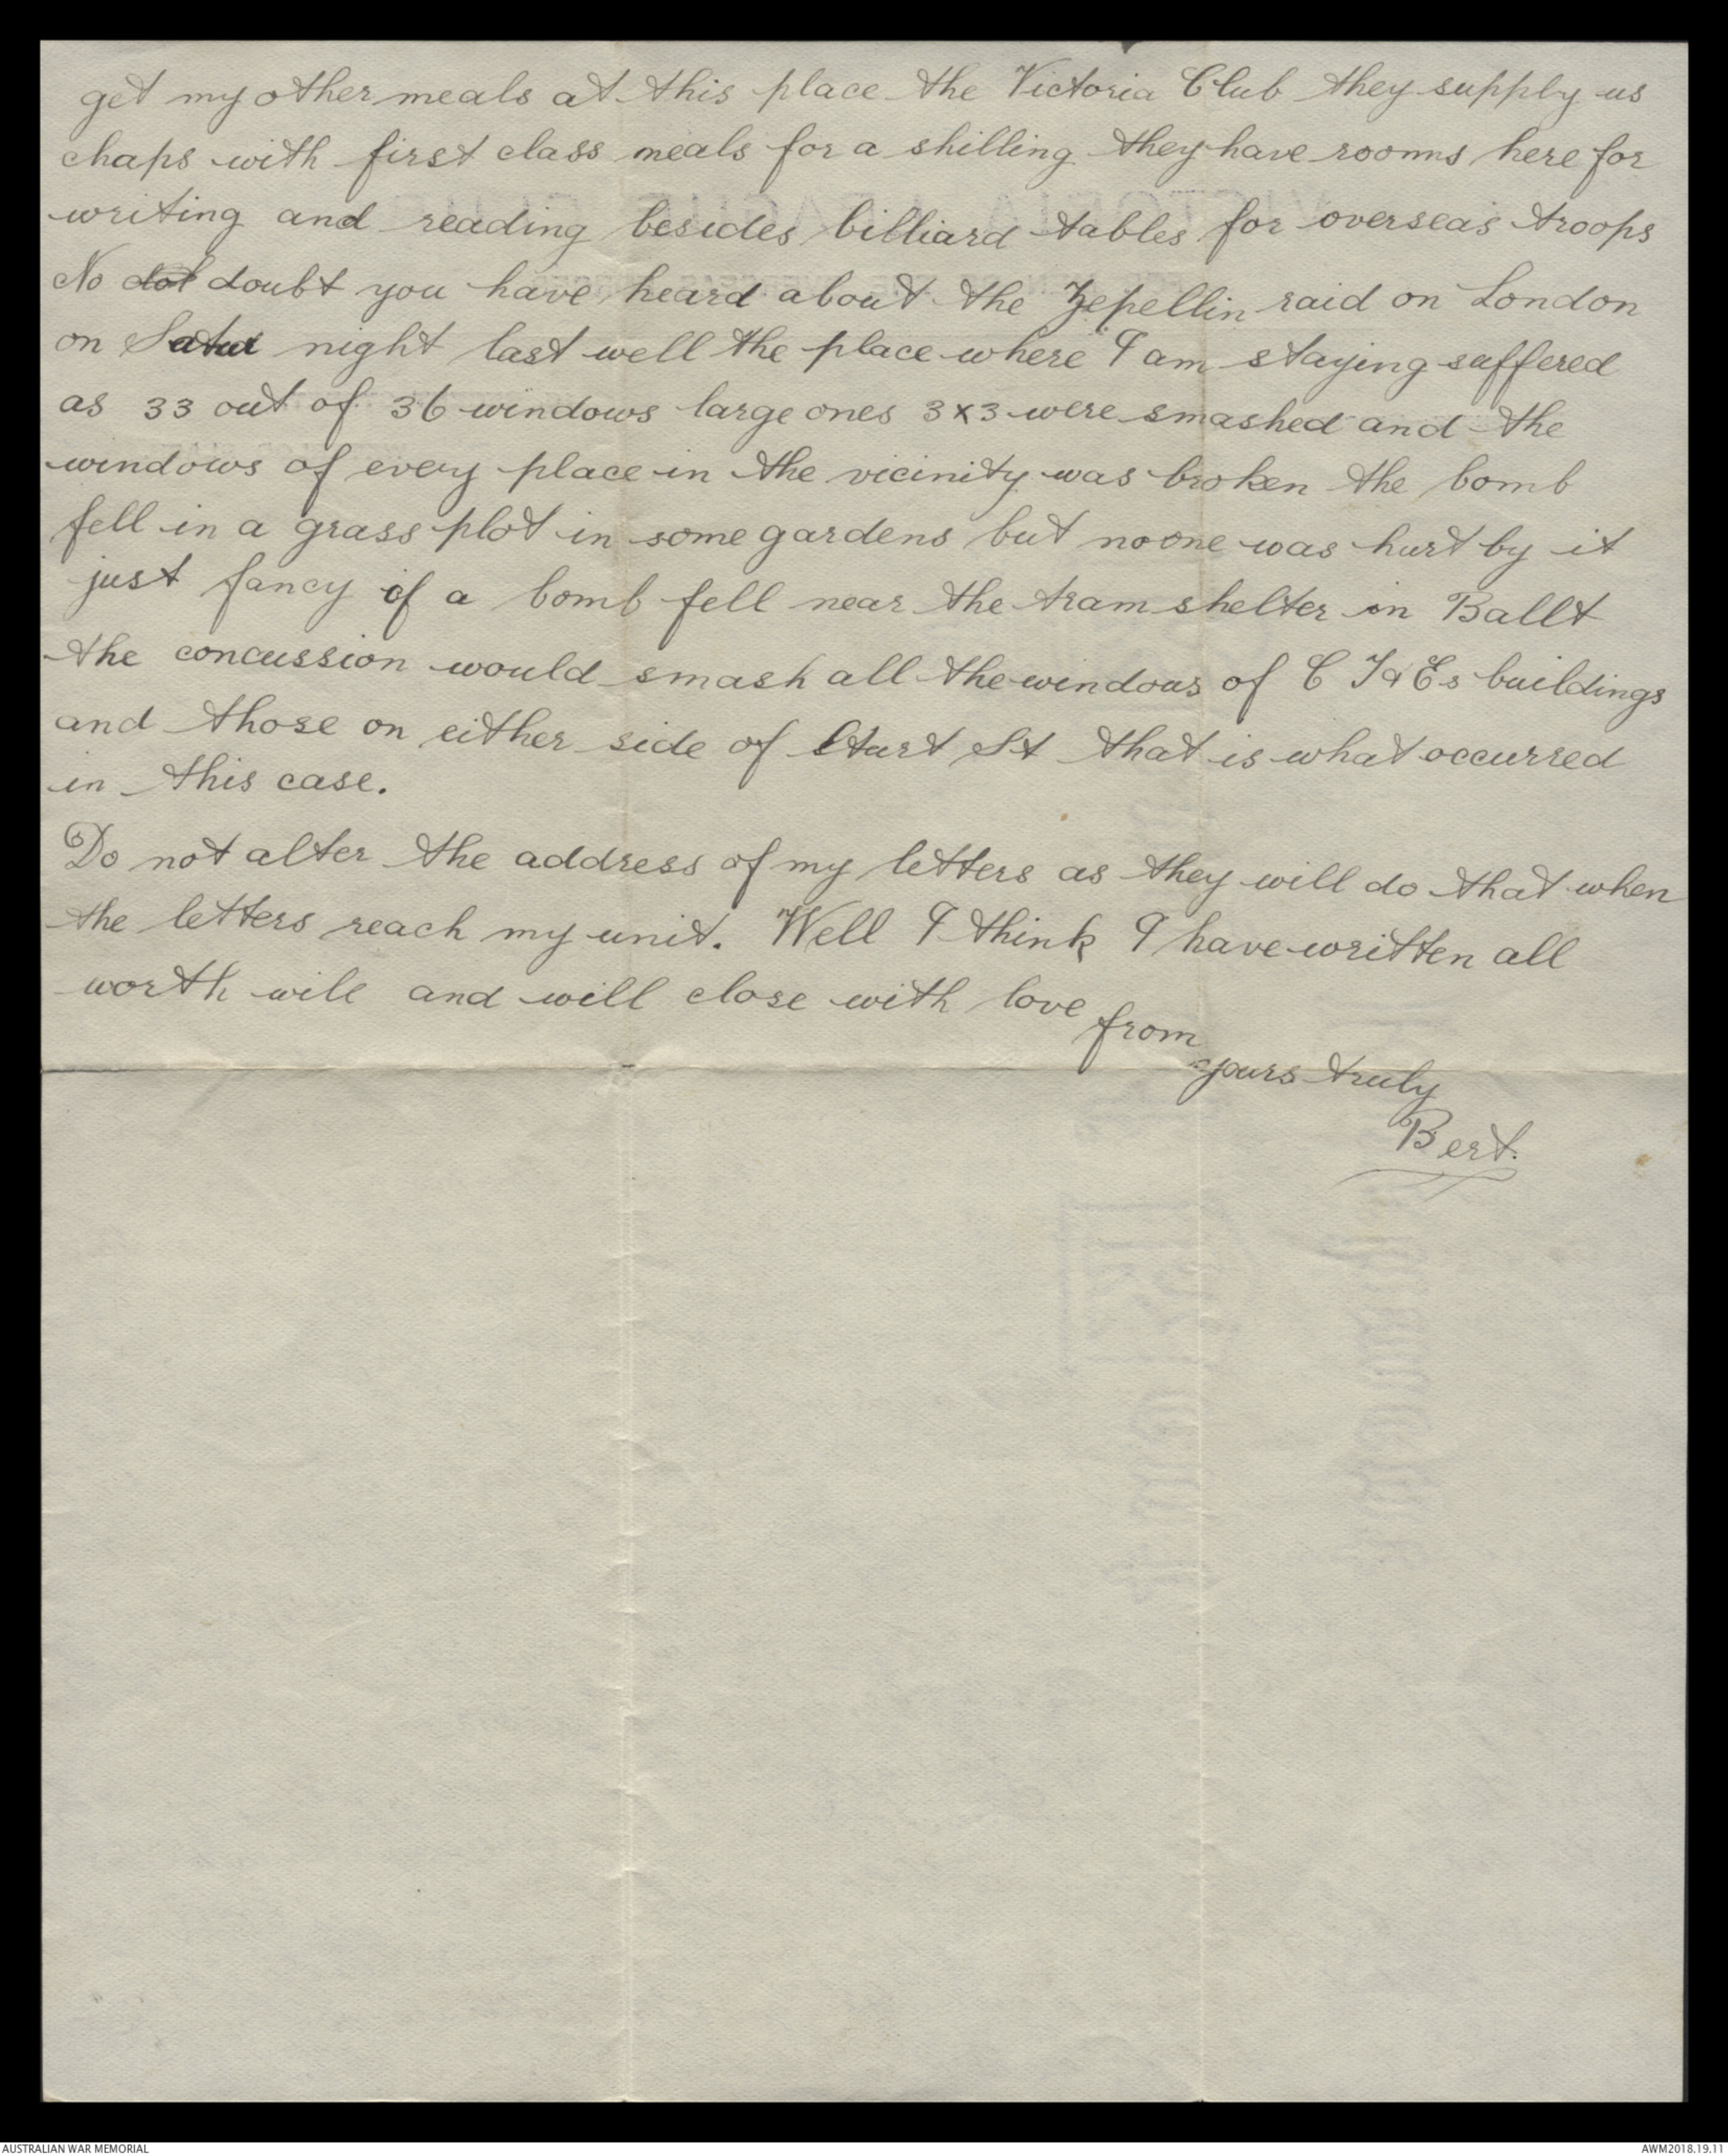 get my other meals at this place the Victoria Club they supply us
chaps with first class meals for a shilling they have rooms here for
writing and reading besides billiard tables for overseas troops
No dot doubt you have heard about the Zepellin raid on London
on Satur night last well the place where I am staying suffered
as 33 out of 36 windows large ones 3x3 were smashed and the
windows of every place in the vicinity was broken the bomb
fell in a grass plot in some gardens but noone was hurt by it
just fancy if a bomb fell near the tram shelter in Ballt
the concussion would smash all the windows of C T & Es buildings
and those on either side of Sturt St that is what occurred
in this case.
Do not alter the address of my letters as they will do that when
the letters reach my unit. Well I think I have written all
worth wile and will close with love
from
yours truly
Bert.
AUSTRALIAN WAR MEMORIAL
AWM2018.19.11